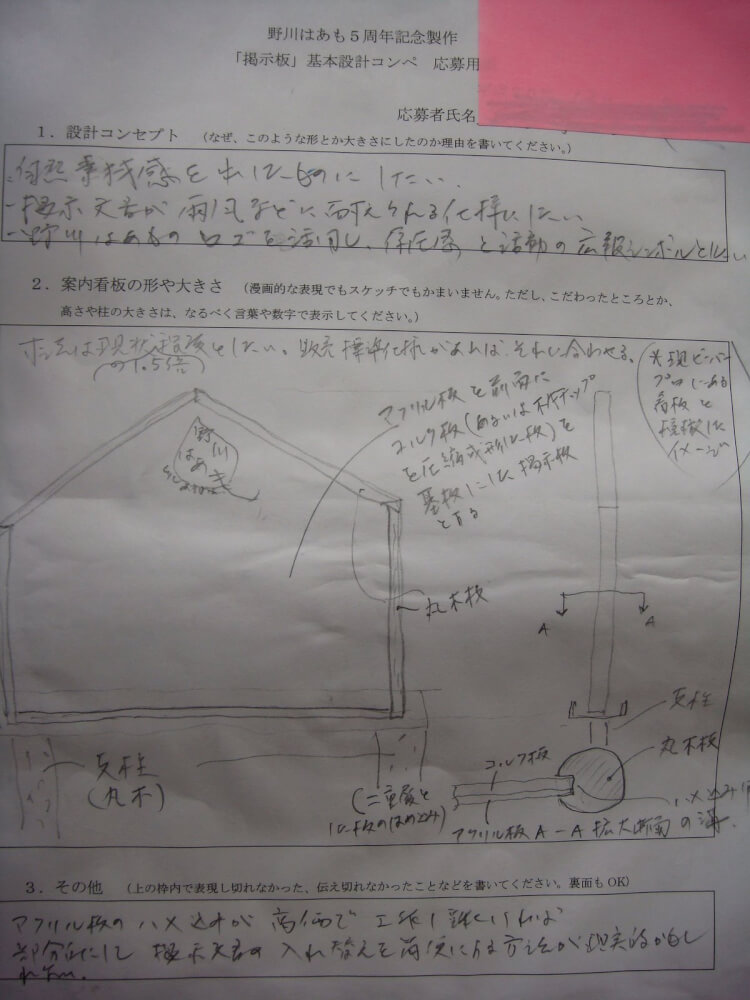 野川はあも5周年記念製作
「掲示板」基本設計コンペ 応募用
応募者氏名
1．設計コンセプト （なぜ、このような形とか大きさにしたのか理由を書いてください。）
-自然素材感を出したものにしたい．
-掲示文書が雨風などに耐えられる仕様にしたい
-野川はあものロゴを活用し、存在感と活動の広報シンボルとしたい
2．案内看板の形や大きさ （漫画的な表現でもスケッチでもかまいません。ただし、こだわったところとか、
高さや柱の大きさは、なるべく言葉や数字で表示してください。）
寸法は現状程度としたい。販売標準仕様があれば、それに合わせる。
(の1.5倍)
野川
はあも
アクリル板を前面に
コルク板(あるいは木チップ
を圧縮成形した板)を
基板にした掲示板
とする
看板と
イメージ
丸木枝
A
A
支柱
丸木枝
支柱
(丸木)
コルク板
アクリル板
A-A 拡大断面
の溝
3．その他 （上の枠内で表現し切れなかった、伝え切れなかったことなどを書いてください。裏面もOK）
アクリル板のハメ込みが高価で工作し難しければ
部分的にして掲示文書の入れ替えを簡便にする方法が現実的かもし
れない．